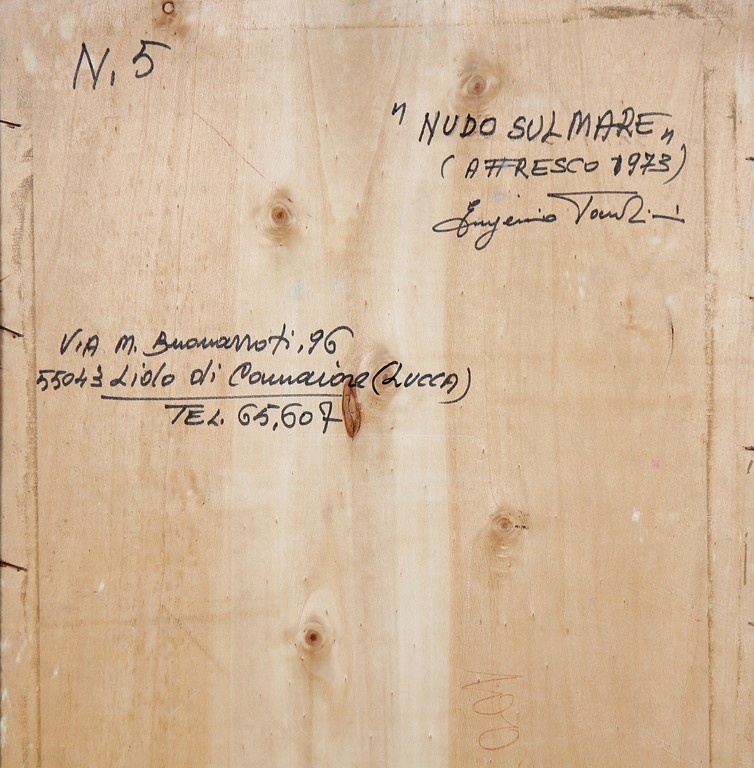 N. 5
" NUDO SUL MARE "
(AFFRESCO 1973)
Eugenio
VIA M. Buonarroti, 96
55043 Lido di Camaiore (LUCCA)
TEL. 65,607
100